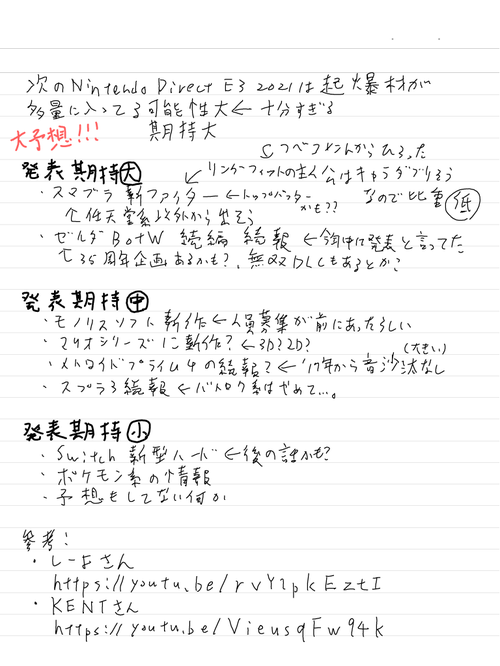 次のNintendo Direct E3 2021は起爆材が
多量に入ってる可能性大←十分すぎる
期待大
大予想!!!
発表期待大
リングフィットの主人公はキャラダブりそう
なので比重低
・スマブラ 新ファイター←トップバッターかも??
↑任天堂系以外から出そう
・ゼルダBotW 続編 続報←今年中に発表と言ってた
↑35周年企画あるかも?、無双DLCもあるとか?
発表期待中
・モノリスソフト新作←人員募集が前にあったらしい
・マリオシリーズに新作?←3D?2D?
(大きい)
・メトロイドプライム4の続報?←'17年から音沙汰なし
・スプラ3続報←バトロワ系はやめて…。
発表期待小
・Switch 新型ハード←後の誰かも?
・ポケモン系の情報
・予想もしてない何か
参考:
・しーよさん
https://youtu.be/rvY2pkEztI
・KENTさん
https://youtu.be/VieusqFw94k